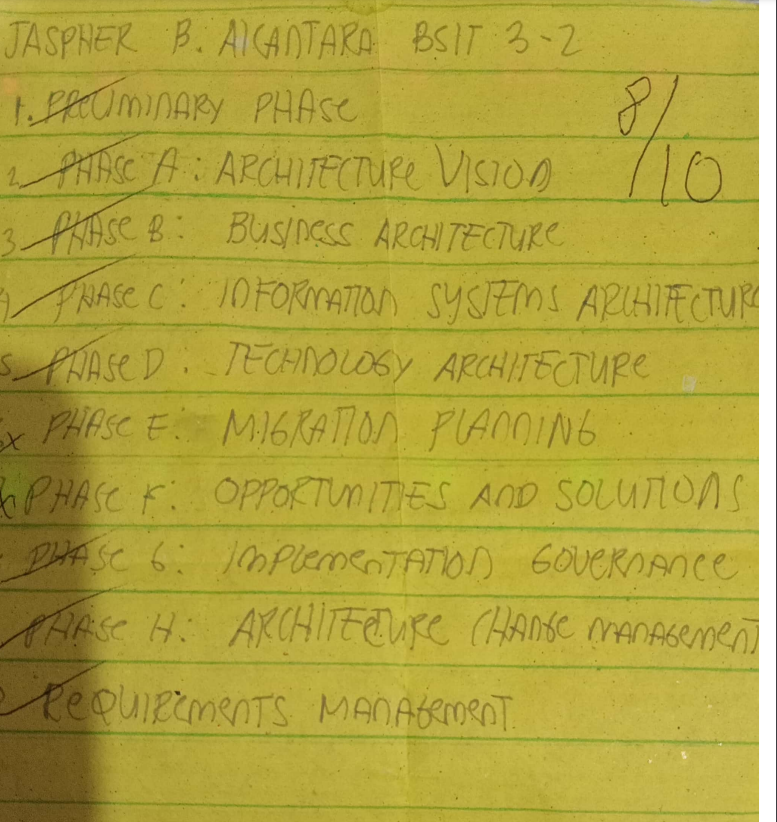 JASPHER B. AlCANTARA BSIT 3-2
1. PRELIMINARY PHASE
8/10
2 PHASE A: ARCHITECTURE VISION
3 PHASE B: BUSINESS ARCHITECTURE
4 PHASE C: INFORMATION SYSTEMS ARCHITECTURE
5 PHASE D: TECHNOLOGY ARCHITECTURE
x PHASE E: MIGRATION PLANNING
x PHASE F: OPPORTUNITIES AND SOLUTIONS
PHASE G: IMPLEMENTATION GOVERNANCE
PHASE H: ARCHITECTURE CHANGE MANAGEMENT
REQUIREMENTS MANAGEMENT